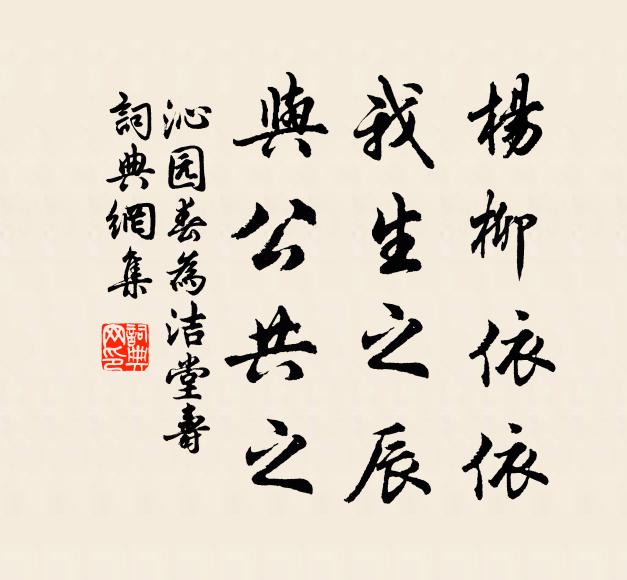 楊柳依依
我生之辰
與公共之
沁园春為洁堂壽
詞典網集
詞典
网印